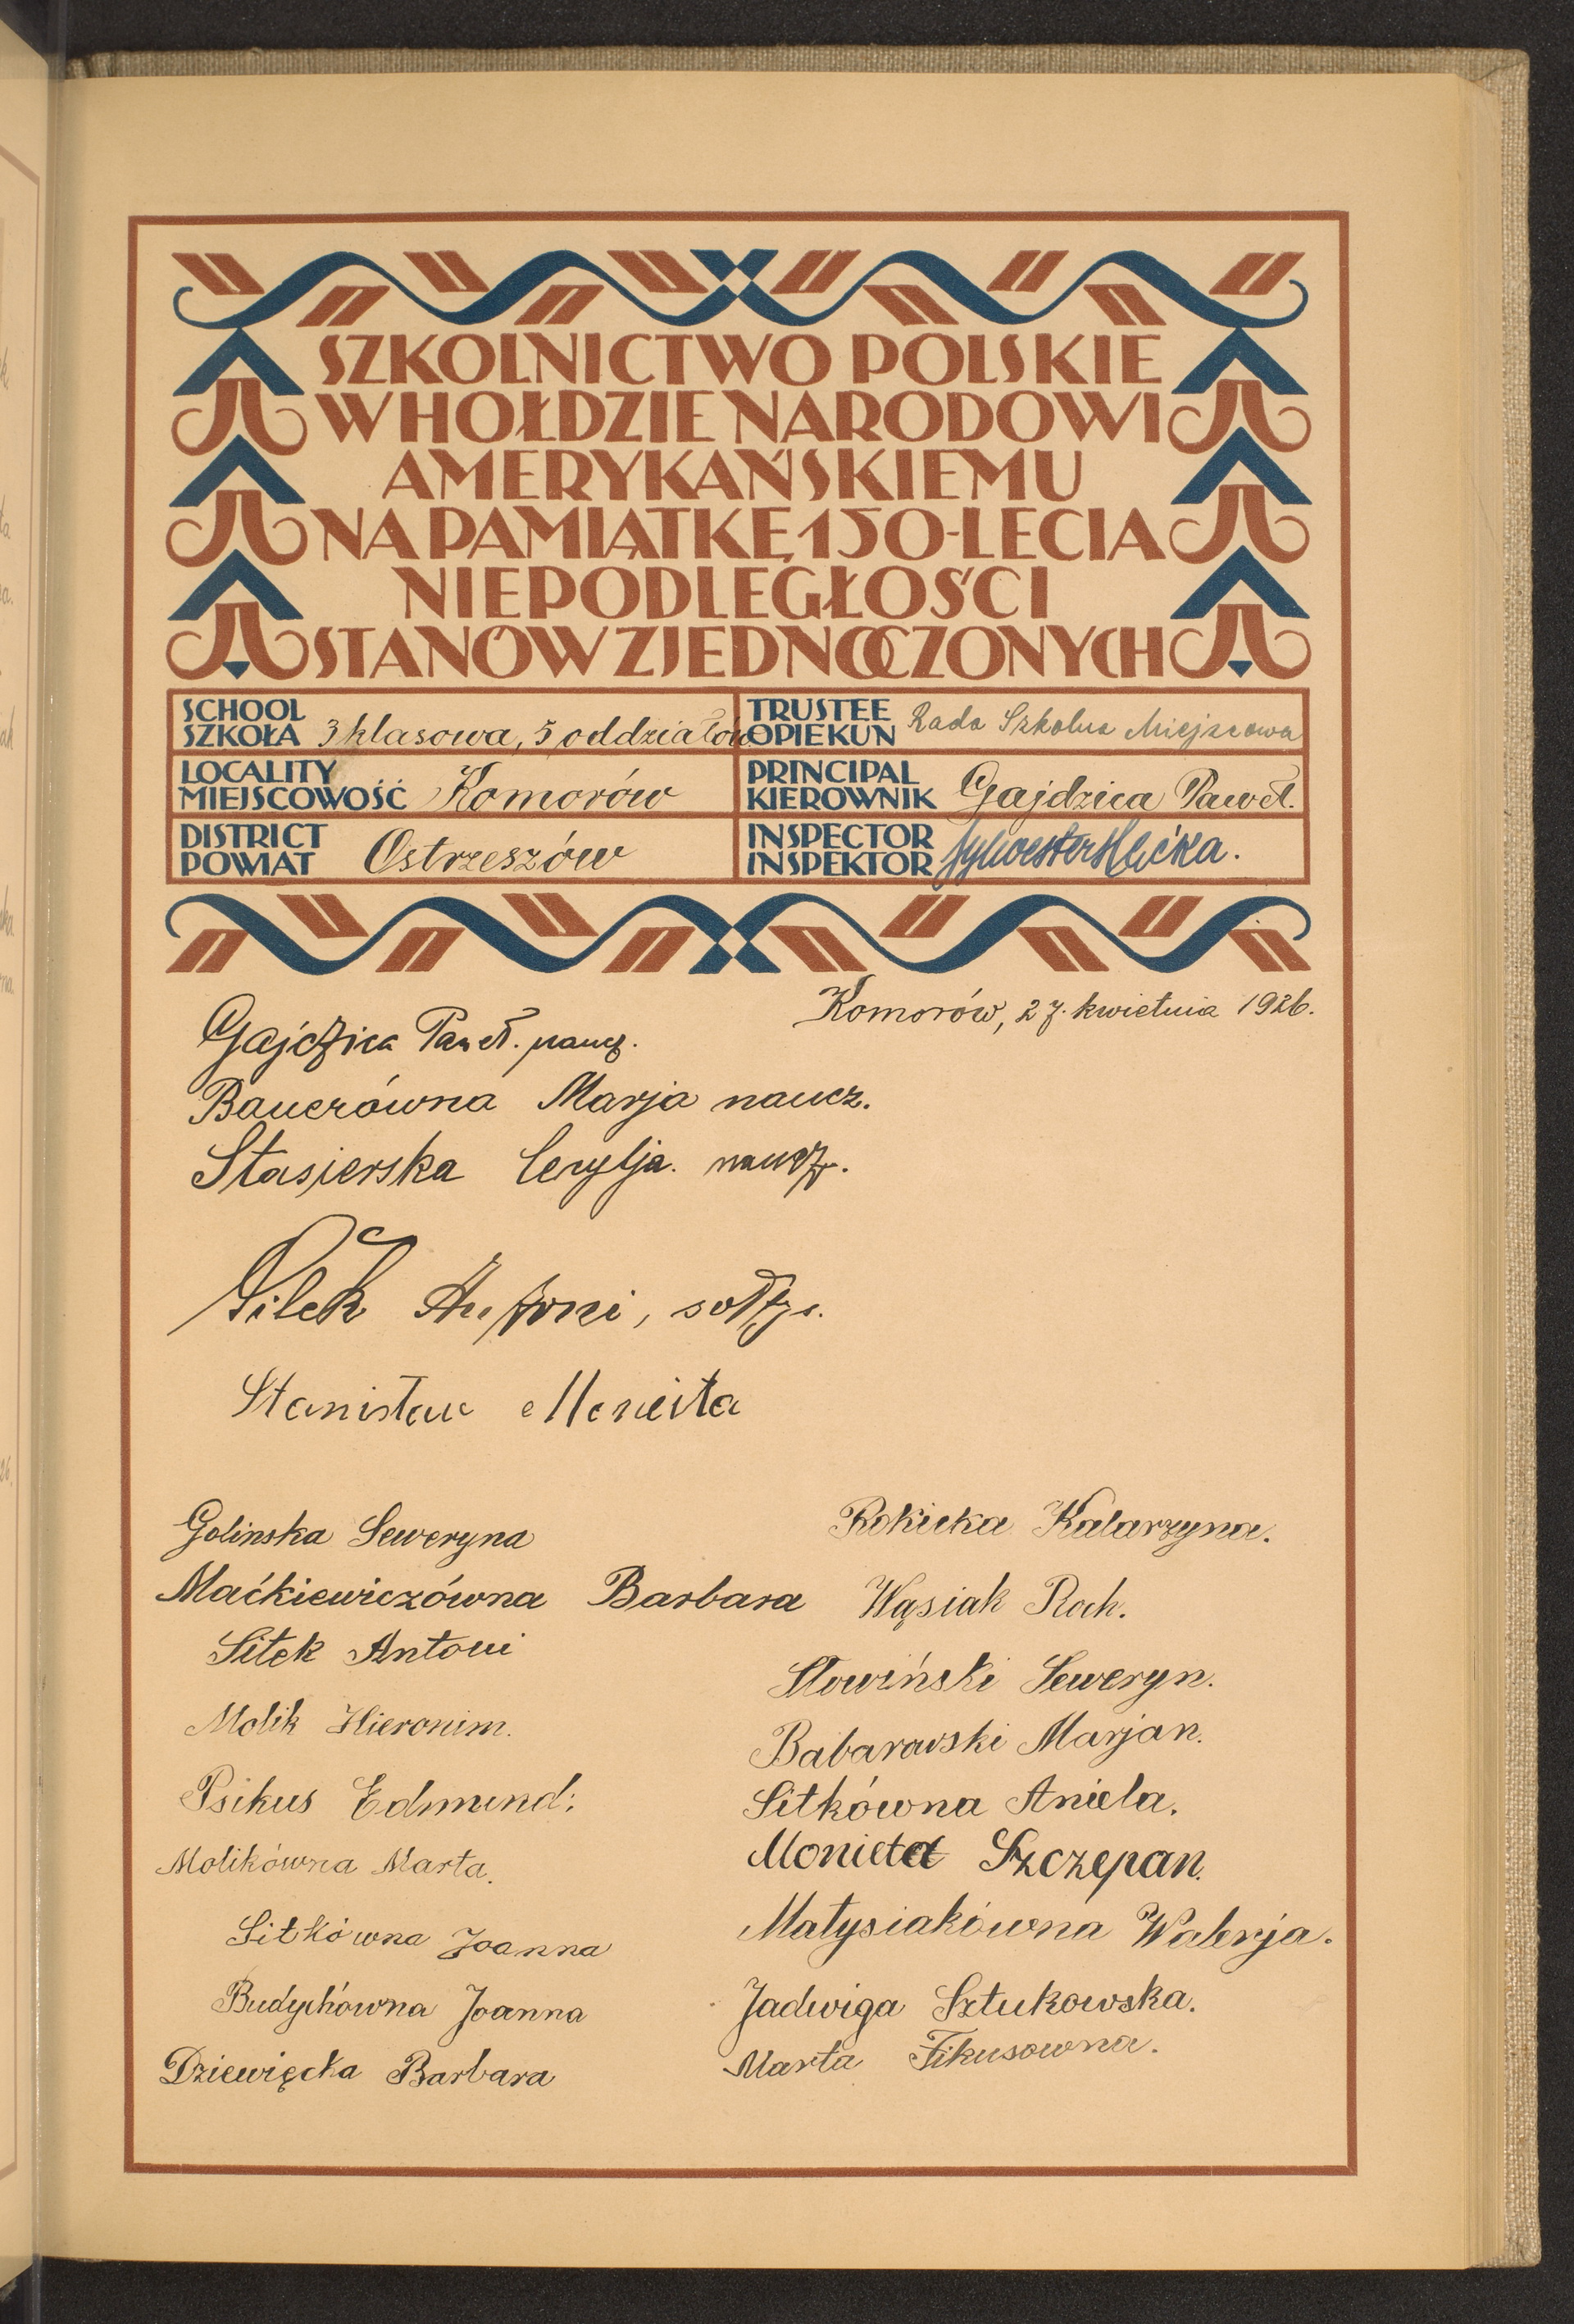 SZKOLNICTWO POLSKIE
W HOŁDZIE NARODOWI
AMERYKAŃSKIEMU
NA PAMIĄTKĘ 150-LECIA
NIEPODLEGŁOŚCI
STANÓW ZJEDNOCZONYCH
SCHOOL
SZKOŁA 3 klasowa, 5 oddziałów
TRUSTEE
OPIEKUN Rada Szkolna Miejscowa
LOCALITY
MIEJSCOWOŚĆ Komorów
PRINCIPAL
KIEROWNIK Gajdzica Paweł.
DISTRICT
POWIAT Ostrzeszów
INSPECTOR
INSPEKTOR Sylwester
Komorów, 27. kwietnia 1926.
Gajdzica Paweł. naucz.
Bauerówna Marja naucz.
Stasierska Cecylja. naucz.
Sitek Antoni, sołtys.
Stanisław Monieta
Golinska Seweryna
Maćkiewiczówna Barbara
Sitek Antoni
Molik Hieronim.
Psikus Edmund.
Molikówna Marta.
Sitkówna Joanna
Budychówna Joanna
Dziewięcka Barbara
Rokicka Katarzyna.
Wąsiak Roch.
Słowiński Seweryn.
Babarowski Marjan.
Sitkówna Aniela.
Monieta Szczepan.
Matysiakówna Walerja.
Jadwiga Sztukowska.
Marta Fikusowna.